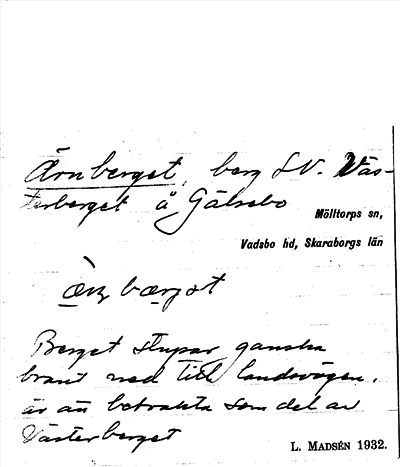 Ärnberget, berg S V. Väs-
terberget å Gälsebo
Mölltorps sn,
Vadsbo hd, Skaraborgs län
bærjət
Berget stupar ganska
brant ned till landsvägen,
är att betrakta som del av
Västerberget
L. MADSÉN 1932.